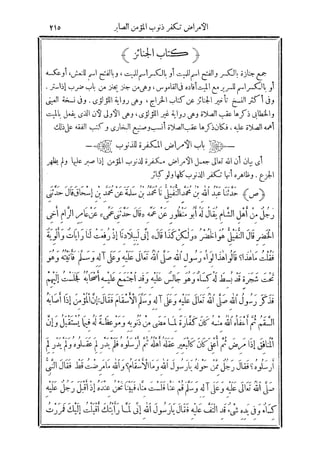 الامراض تكفر ذنوب المؤمن الصابر ٢١٥
﴿ كتاب الجنائز ﴾
جمع جنازة بالكسر والفتح اسم للميت أو بالكسر اسم للميت ، وبالفتح اسم للنعش، أو عكسه
أو بالكسر اسم للسرير مع الميت أفاده فى القاموس، وهى من جنز يجنز من باب ضرب إذا ستر .
وفى أكثر النسخ تأخير الجنائز عن كتاب الخراج، وهى رواية اللؤلؤى . وفى نسخة العينى
والخطابى ذكرها عقب الصلاة وهى رواية غير اللؤلؤى، وهى الأولى لأن الذى يفعل بالميت
أهمه الصلاة عليه . فكان ذكرها عقب الصلاة أنسب وصنيع البخارى وكتب الفقه على ذلك
﴿ باب الأمراض المكفرة للذنوب ﴾
أى بيان أن الله تعالى جعل الأمراض مكفرة لذنوب المؤمن إذا صبر عليها ولم يظهر
الجزع . وظاهره أنها تكفر الذنوب كلها ولو كبائر
﴿ص﴾ حَدَّثَنَا عَبْدُ اللهِ بْنُ مُحَمَّدٍ النُّفَيْلِىُّ نَا مُحَمَّدُ بْنُ سَلَمَةَ عَنْ مُحَمَّدِ بْنِ إِسْحَاقَ قَالَ حَدَّثَنِى
رَجُلٌ مِنْ أَهْلِ الشَّامِ يُقَالُ لَهُ أَبُو مَنْظُورٍ عَنْ عَمِّهِ قَالَ حَدَّثَنِى عَمِّى عَنْ عَامِرٍ الرَّامِ أَخِى
الْخُضْرِ قَالَ النُّفَيْلِىُّ هُوَ الْخُضْرُ وَلَكِنْ كَذَا قَالَ ، إِنِّى لَبِبِلَادِنَا إِذْ رُفِعَتْ لَنَا رَايَاتٌ وَأَلْوِيَةٌ
فَقُلْتُ مَا هَذَا؟ قَالُوا هَذَا لِوَاءُ رَسُولِ اللهِ صَلَّى اللهُ تَعَالَى عَلَيْهِ وَعَلَى آلِهِ وَسَلَّمَ فَأَتَيْتُهُ وَهُوَ
تَحْتَ شَجَرَةٍ قَدْ بُسِطَ لَهُ كِسَاءٌ وَهُوَ جَالِسٌ عَلَيْهِ وَقَدِ اجْتَمَعَ عَلَيْهِ أَصْحَابُهُ فَجَلَسْتُ إِلَيْهِمْ
فَذَكَرَ رَسُولُ اللهِ صَلَّى اللهُ تَعَالَى عَلَيْهِ وَعَلَى آلِهِ وَسَلَّمَ الْأَسْقَامَ فَقَالَ: إِنَّ الْمُؤْمِنَ إِذَا أَصَابَهُ
السَّقَمُ ثُمَّ أَعْفَاهُ اللهُ مِنْهُ كَانَ كَفَّارَةً لِمَا مَضَى مِنْ ذُنُوبِهِ وَمَوْعِظَةً لَهُ فِيمَا يَسْتَقْبِلُ وَإِنَّ
الْمُنَافِقَ إِذَا مَرِضَ ثُمَّ أُعْفِىَ كَانَ كَالْبَعِيرِ عَقَلَهُ أَهْلُهُ ثُمَّ أَرْسَلُوهُ فَلَمْ يَدْرِ لِمَ عَقَلُوهُ وَلَمْ يَدْرِ لِمَ
أَرْسَلُوهُ؟ فَقَالَ رَجُلٌ مِمَّنْ حَوْلَهُ يَا رَسُولَ اللهِ وَمَا الْأَسْقَامُ؟ وَاللهِ مَا مَرِضْتُ قَطُّ فَقَالَ النَّبِىُّ
صَلَّى اللهُ تَعَالَى عَلَيْهِ وَعَلَى آلِهِ وَسَلَّمَ قُمْ عَنَّا فَلَسْتَ مِنَّا، فَبَيْنَا نَحْنُ عِنْدَهُ إِذْ أَقْبَلَ رَجُلٌ عَلَيْهِ
كِسَاءٌ وَفِى يَدِهِ شَىْءٌ قَدِ الْتَفَّ عَلَيْهِ فَقَالَ يَا رَسُولَ اللهِ إِنِّى لَمَّا رَأَيْتُكَ أَقْبَلْتُ إِلَيْكَ فَمَرَرْتُ